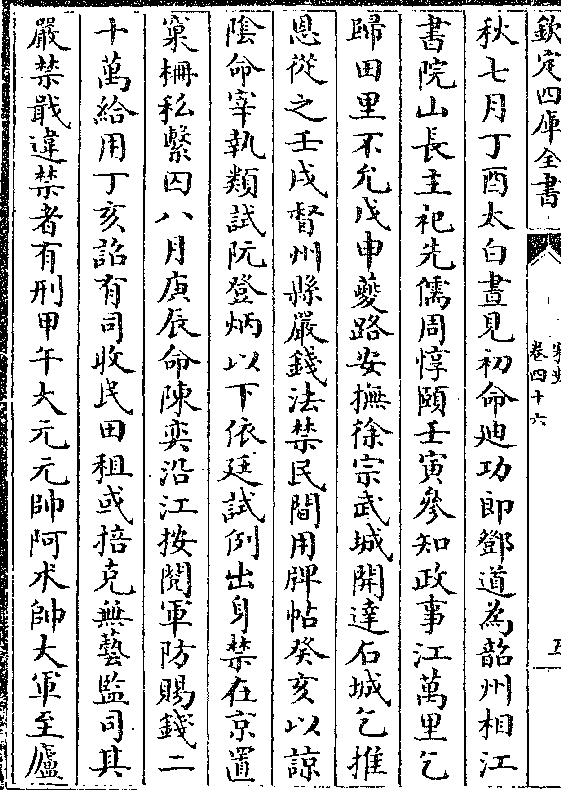 欽定四庫全書
宋史
卷四十六
五
秋七月丁酉太白晝見初命迪功郎鄧道為韶州相江
書院山長主祀先儒周惇頤壬寅參知政事江萬里乞
歸田里不允戊申夔路安撫徐宗武城開達石城乞推
恩從之壬戌督州縣嚴錢法禁民間用牌帖癸亥以諒
陰命宰執類試阮登炳以下依廷試例出身禁在京置
窠柵私繫囚八月庚辰命陳奕沿江按閱軍防賜錢二
十萬給用丁亥詔有司收民田租或掊克無藝監司其
嚴禁戢違禁者有刑甲午大元元帥阿朮帥大軍至廬